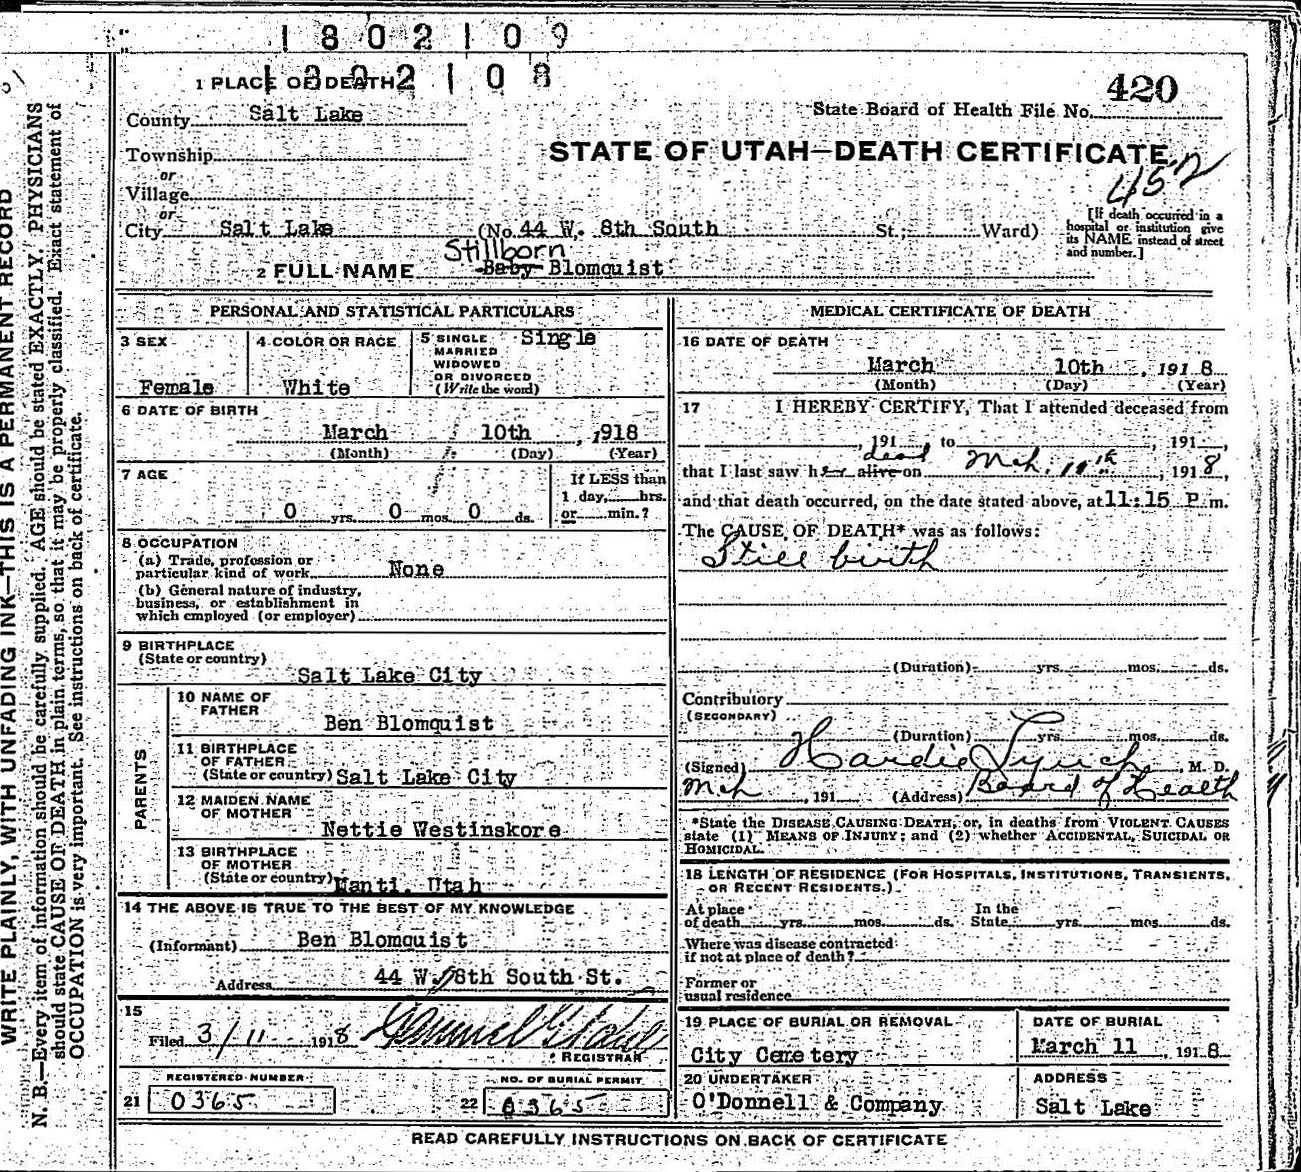 1802109
1802108
1 PLACE OF DEATH
420
State Board of Health File No.
County Salt Lake
STATE OF UTAH—DEATH CERTIFICATE
452
Township
or
Village
or
City Salt Lake (No. 44 W. 8th South St.; Ward)
[If death occurred in a
hospital or institution give
its NAME instead of street
and number.]
Stillborn
2 FULL NAME Baby Blomquist
PERSONAL AND STATISTICAL PARTICULARS
3 SEX
Female
4 COLOR OR RACE
White
5 SINGLE
MARRIED
WIDOWED
OR DIVORCED
(Write the word)
Single
6 DATE OF BIRTH
March 10th, 1918
(Month) (Day) (Year)
7 AGE
0 yrs. 0 mos. 0 ds.
If LESS than
1 day, hrs.
or min.?
8 OCCUPATION
(a) Trade, profession or
particular kind of work None
(b) General nature of industry,
business, or establishment in
which employed (or employer)
9 BIRTHPLACE
(State or country)
Salt Lake City
PARENTS
10 NAME OF
FATHER
Ben Blomquist
11 BIRTHPLACE
OF FATHER
(State or country) Salt Lake City
12 MAIDEN NAME
OF MOTHER
Nettie Westinskore
13 BIRTHPLACE
OF MOTHER
(State or country) Manti, Utah
14 THE ABOVE IS TRUE TO THE BEST OF MY KNOWLEDGE
(Informant) Ben Blomquist
Address 44 W. 8th South St.
15
Filed 3/11 1918
REGISTRAR
REGISTERED NUMBER
21 0365
NO. OF BURIAL PERMIT
22 0365
MEDICAL CERTIFICATE OF DEATH
16 DATE OF DEATH
March 10th, 1918
(Month) (Day) (Year)
17 I HEREBY CERTIFY, That I attended deceased from
, 191 , to , 191 ,
dead
that I last saw her alive on Mch. 10th, 1918,
and that death occurred, on the date stated above, at 11:15 P.m.
The CAUSE OF DEATH* was as follows:
Still birth
(Duration) yrs. mos. ds.
Contributory
(SECONDARY)
(Duration) yrs. mos. ds.
(Signed) Hardie Lynch, M. D.
Mch, 191 (Address) Board of Health
*State the DISEASE CAUSING DEATH, or, in deaths from VIOLENT CAUSES
state (1) MEANS OF INJURY; and (2) whether ACCIDENTAL, SUICIDAL OR
HOMICIDAL.
18 LENGTH OF RESIDENCE (FOR HOSPITALS, INSTITUTIONS, TRANSIENTS,
OR RECENT RESIDENTS.)
At place
of death yrs. mos. ds.
In the
State yrs. mos. ds.
Where was disease contracted
if not at place of death?
Former or
usual residence
19 PLACE OF BURIAL OR REMOVAL
City Cemetery
DATE OF BURIAL
March 11, 1918
20 UNDERTAKER
O'Donnell & Company
ADDRESS
Salt Lake
READ CAREFULLY INSTRUCTIONS ON BACK OF CERTIFICATE
WRITE PLAINLY, WITH UNFADING INK—THIS IS A PERMANENT RECORD
N. B.—Every item of information should be carefully supplied. AGE should be stated EXACTLY. PHYSICIANS
should state CAUSE OF DEATH in plain terms, so that it may be properly classified. Exact statement of
OCCUPATION is very important. See instructions on back of certificate.